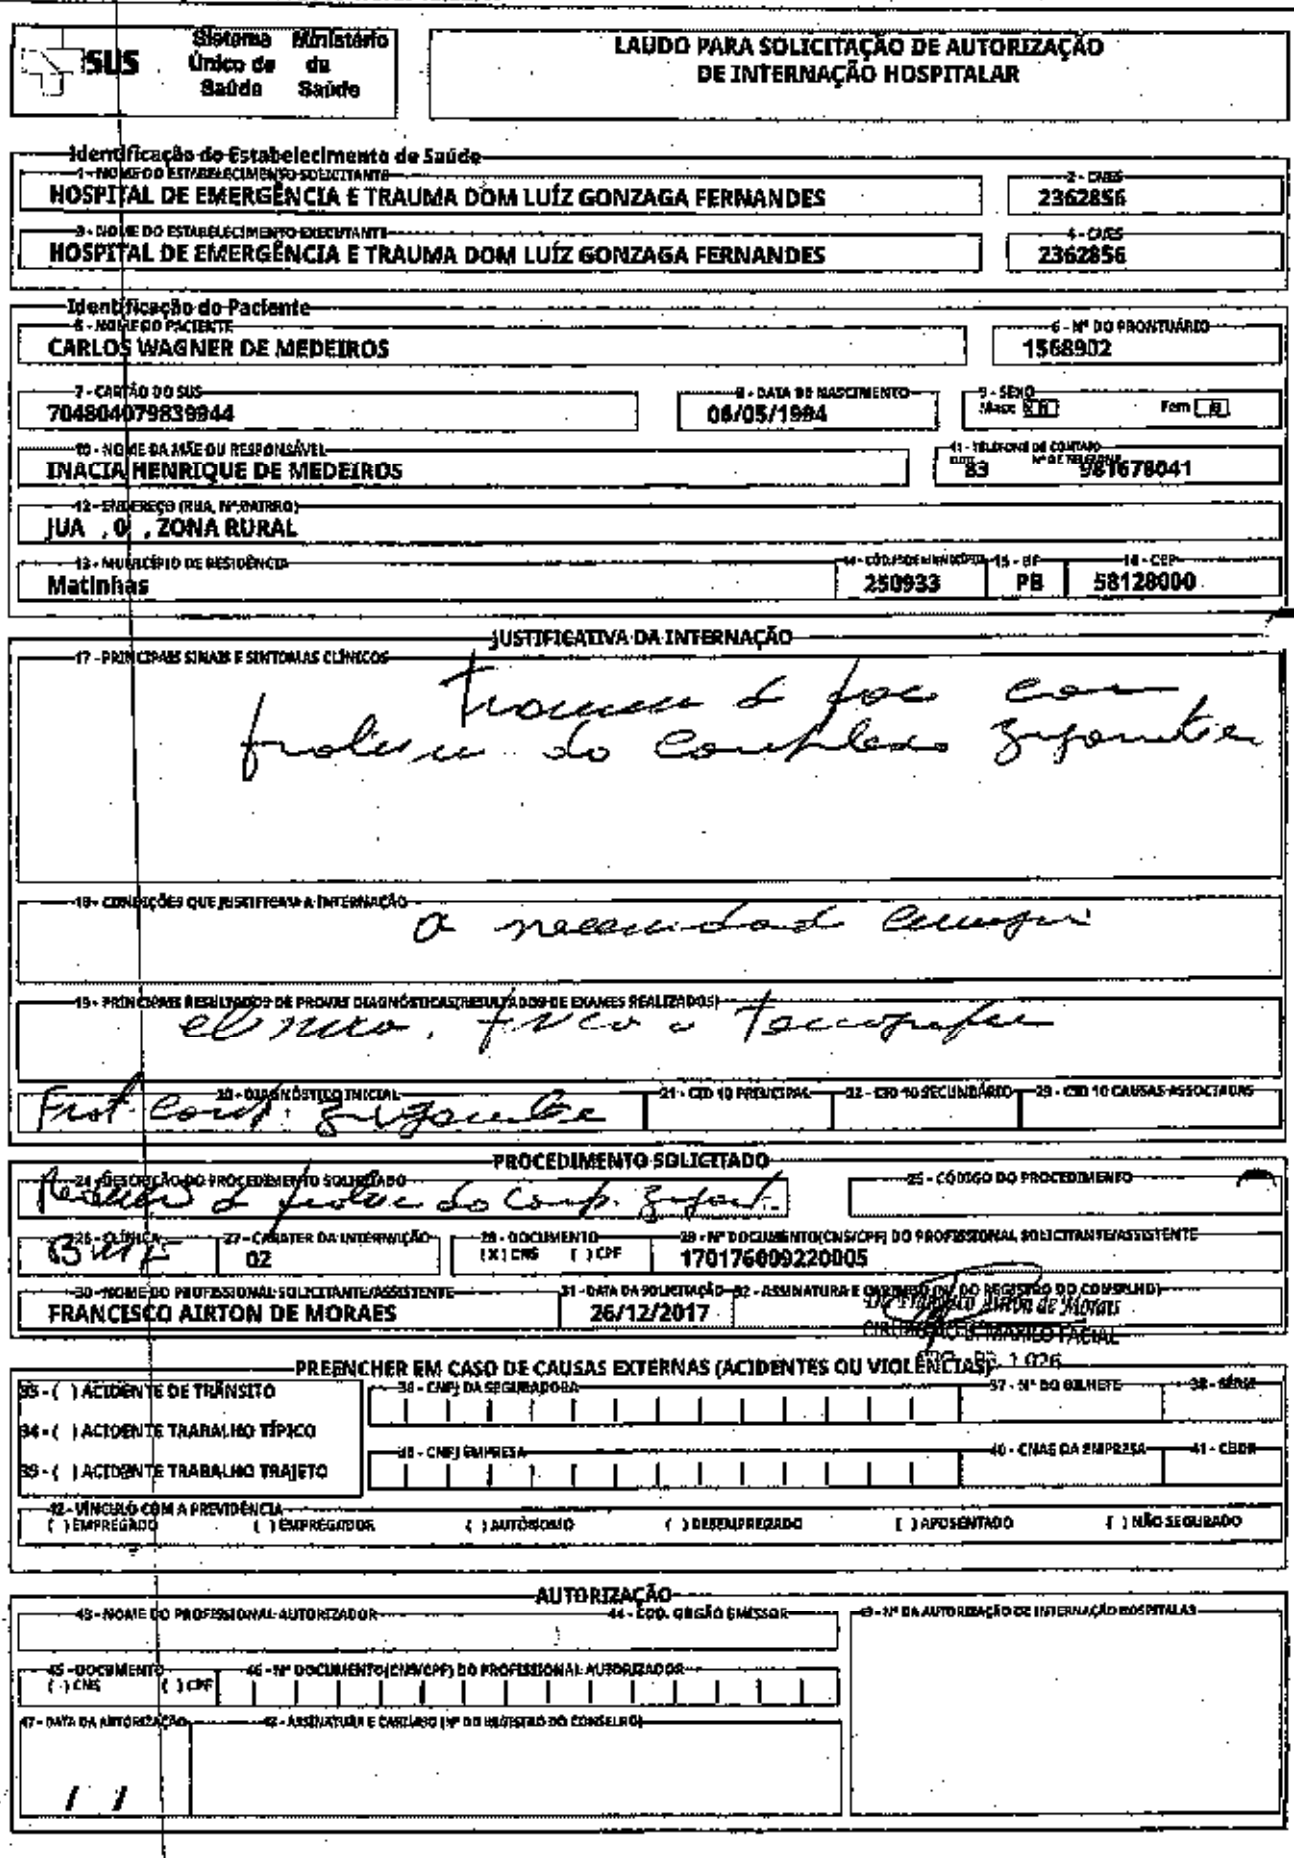 SUS
Sistema Único de Saúde
Ministério da Saúde
LAUDO PARA SOLICITAÇÃO DE AUTORIZAÇÃO
DE INTERNAÇÃO HOSPITALAR
Identificação do Estabelecimento de Saúde
1 - NOME DO ESTABELECIMENTO SOLICITANTE
HOSPITAL DE EMERGÊNCIA E TRAUMA DOM LUÍZ GONZAGA FERNANDES
2 - CNES
2362856
3 - NOME DO ESTABELECIMENTO EXECUTANTE
HOSPITAL DE EMERGÊNCIA E TRAUMA DOM LUÍZ GONZAGA FERNANDES
4 - CNES
2362856
Identificação do Paciente
5 - NOME DO PACIENTE
CARLOS WAGNER DE MEDEIROS
6 - Nº DO PRONTUÁRIO
1568902
7 - CARTÃO DO SUS
704804079839944
8 - DATA DE NASCIMENTO
06/05/1994
9 - SEXO
Masc
Fem
10 - NOME DA MÃE OU RESPONSÁVEL
INACIA HENRIQUE DE MEDEIROS
11 - TELEFONE DE CONTATO
Nº DE TELEFONE
83 981678041
12 - ENDEREÇO (RUA, Nº, BAIRRO)
JUA , 0 , ZONA RURAL
13 - MUNICÍPIO DE RESIDÊNCIA
Matinhas
250933
15 - UF
PB
16 - CEP
58128000
JUSTIFICATIVA DA INTERNAÇÃO
17 - PRINCIPAIS SINAIS E SINTOMAS CLÍNICOS
com
do
18 - CONDIÇÕES QUE JUSTIFICAM A INTERNAÇÃO
a
19 - PRINCIPAIS RESULTADOS DE PROVAS DIAGNÓSTICAS(RESULTADOS DE EXAMES REALIZADOS)
20 - DIAGNÓSTICO INICIAL
21 - CID 10 PRINCIPAL
22 - CID 10 SECUNDÁRIO
23 - CID 10 CAUSAS ASSOCIADAS
PROCEDIMENTO SOLICITADO
24 - DESCRIÇÃO DO PROCEDIMENTO SOLICITADO
do Comp.
25 - CÓDIGO DO PROCEDIMENTO
26 - CLÍNICA
BMF
27 - CARATER DA INTERNAÇÃO
02
28 - DOCUMENTO
(X) CNS ( ) CPF
29 - Nº DOCUMENTO(CNS/CPF) DO PROFISSIONAL SOLICITANTE/ASSISTENTE
170176009220005
30 - NOME DO PROFISSIONAL SOLICITANTE/ASSISTENTE
FRANCESCO AIRTON DE MORAES
31 - DATA DA SOLICITAÇÃO
26/12/2017
32 - ASSINATURA E CARIMBO (Nº DO REGISTRO DO CONSELHO)
Airton de Morais
MAXILO FACIAL
PREENCHER EM CASO DE CAUSAS EXTERNAS (ACIDENTES OU VIOLÊNCIAS)
33 - ( ) ACIDENTE DE TRÂNSITO
34 - ( ) ACIDENTE TRABALHO TÍPICO
35 - ( ) ACIDENTE TRABALHO TRAJETO
36 - CNPJ DA SEGURADORA
37 - Nº DO BILHETE
38 - SÉRIE
CNPJ EMPRESA
40 - CNAE DA EMPRESA
41 - CBOR
42 - VÍNCULO COM A PREVIDÊNCIA
( ) EMPREGADO ( ) EMPREGADOR ( ) AUTÔNOMO ( ) DESEMPREGADO ( ) APOSENTADO ( ) NÃO SEGURADO
AUTORIZAÇÃO
43 - NOME DO PROFISSIONAL AUTORIZADOR
44 - COD. ORGÃO EMISSOR
Nº DA AUTORIZAÇÃO DE INTERNAÇÃO HOSPITALAR
45 - DOCUMENTO
( ) CNS ( ) CPF
46 - Nº DOCUMENTO(CNS/CPF) DO PROFISSIONAL AUTORIZADOR
47 - DATA DA AUTORIZAÇÃO
ASSINATURA E CARIMBO (Nº DO REGISTRO DO CONSELHO)
/ /